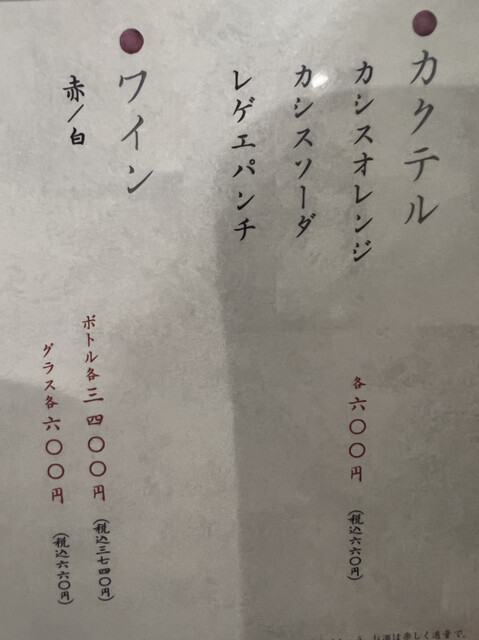 ●カクテル
カシスオレンジ
各六〇〇円
(税込六六〇円)
カシスソーダ
レゲエパンチ
●ワイン
赤/白
ボトル各三四〇〇円
(税込三七四〇円)
グラス各六〇〇円
(税込六六〇円)
お酒は楽しく適量で。